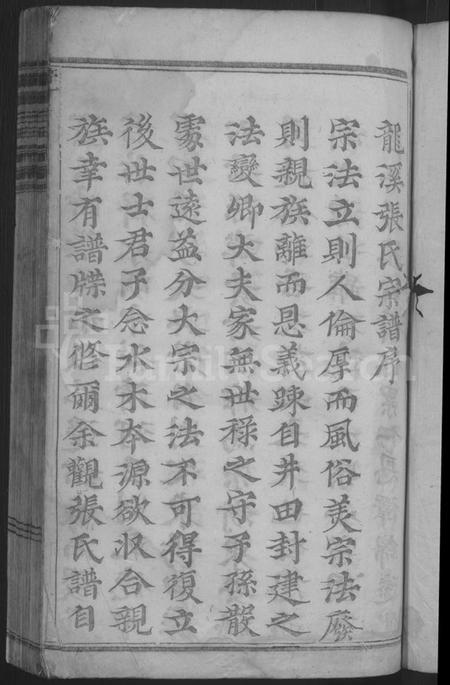 龍溪張氏宗譜序
宗法立則人倫厚而風俗美宗法廢
則親族離而恩義踈自井田封建之
法變卿大夫家無世祿之守子孫散
處世逺益分大宗之法不可得復立
後世士君子念水木本源欲収合親
族幸有譜牒之修爾余觀張氏譜自
FamilySearch